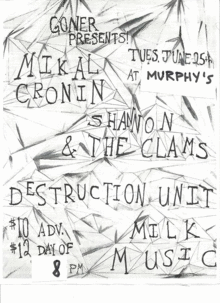 GONER
PRESENTS!
TUES. JUNE 25th
AT MURPHY'S
MIKAL
CRONIN
SHANNON
& THE CLAMS
DESTRUCTION UNIT
$10 ADV.
$12 DAY OF
8 PM
MILK
MUSIC